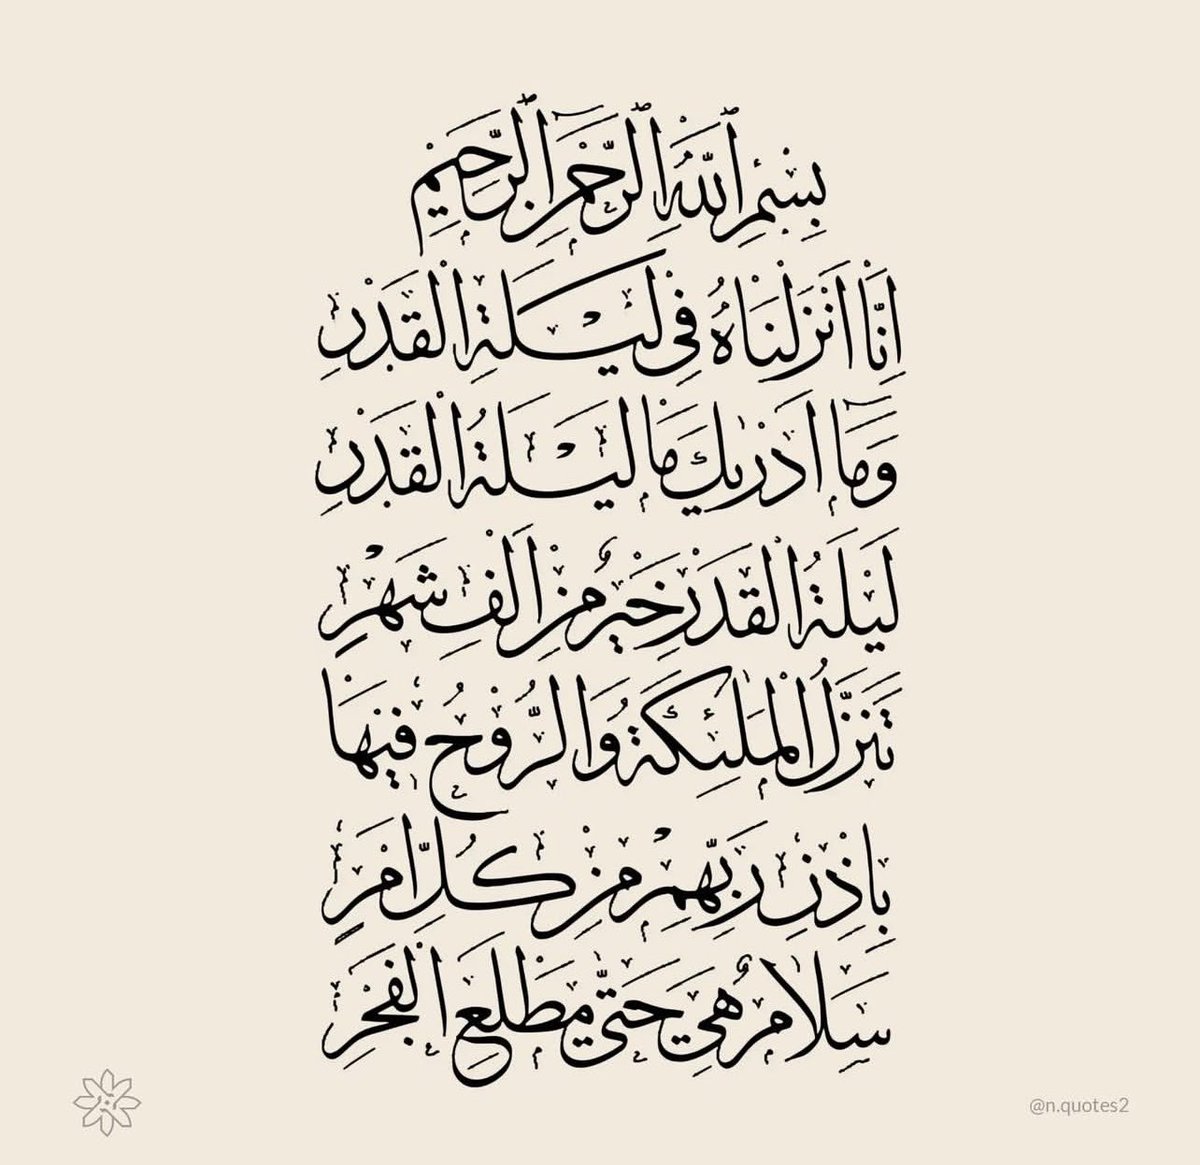 بِسْمِ ٱللَّهِ ٱلرَّحْمَٰنِ ٱلرَّحِيمِ
اِنَّا اَنْزَلْنَاهُ فِى لَيْلَةِ الْقَدْرِ
وَمَٓا اَدْرٰيكَ مَا لَيْلَةُ الْقَدْرِ
لَيْلَةُ الْقَدْرِ خَيْرٌ مِنْ اَلْفِ شَهْرٍ
تَنَزَّلُ الْمَلٰئِكَةُ وَالرُّوْحُ فِيْهَا
بِاِذْنِ رَبِّهِمْ مِنْ كُلِّ اَمْرٍ
سَلَامٌ هِيَ حَتّٰى مَطْلَعِ الْفَجْرِ
@n.quotes2